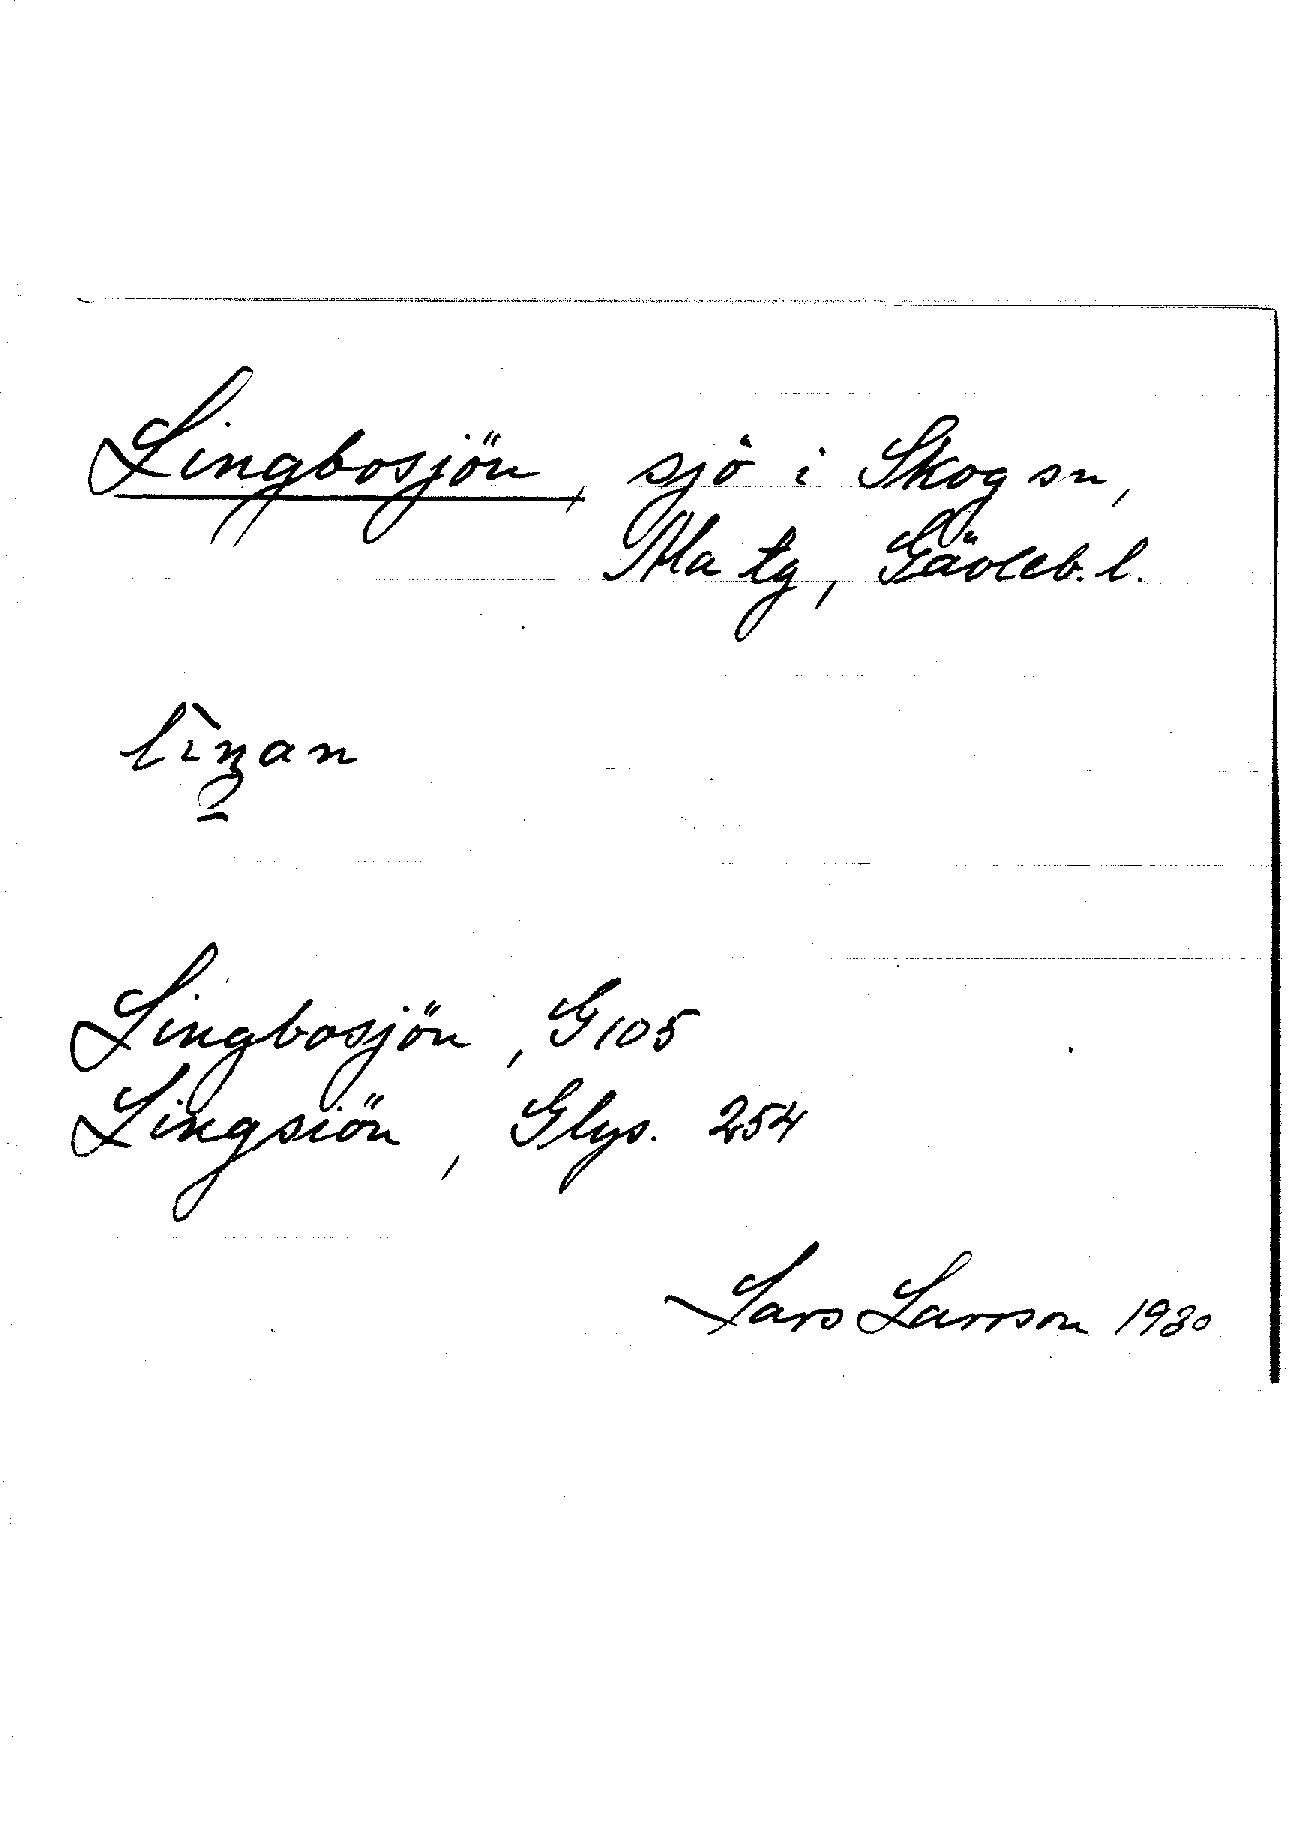 Lingbosjön, sjö i Skog sn,
Ala tg, Gävleb. l.
lìŋan
Lingbosjön, G 105
Lingsiön, Glys. 254
Lars Larsson 1930